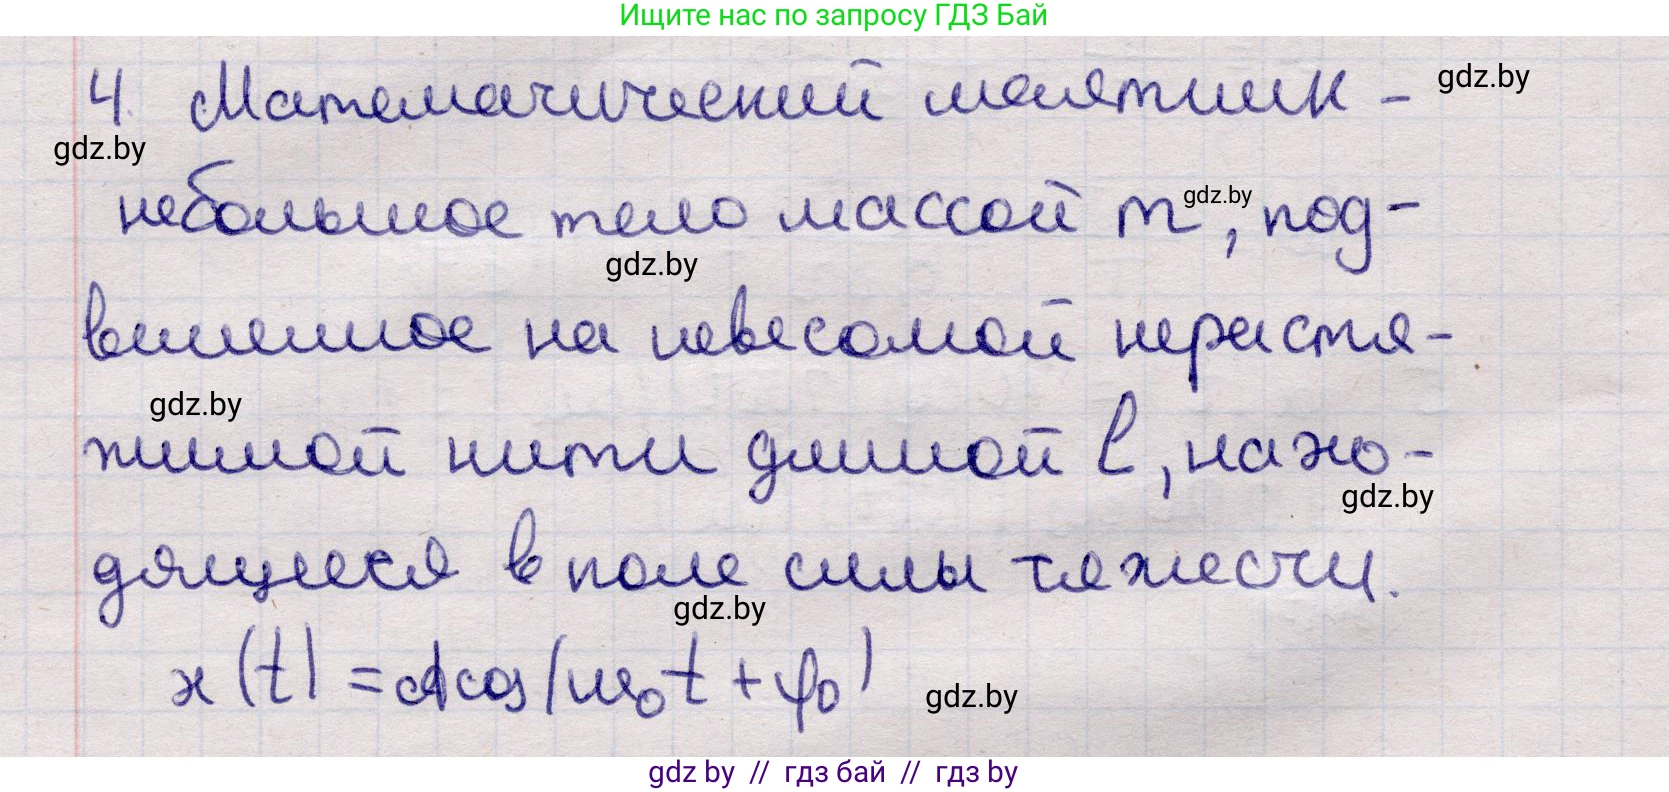 Ищите нас по запросу ГДЗ Бай
4. Математический маятник - gdz.by
gdz.by
небольшое тело массой m gdz.by, под-
gdz.by
вешенное на невесомой нерастя-
gdz.by
жимой нити длиной l, нахо-
gdz.by
дящееся в поле силы тяжести.
gdz.by
x(t) = A cos(ω₀t + φ₀) gdz.by
gdz by // гдз бай // гдз by